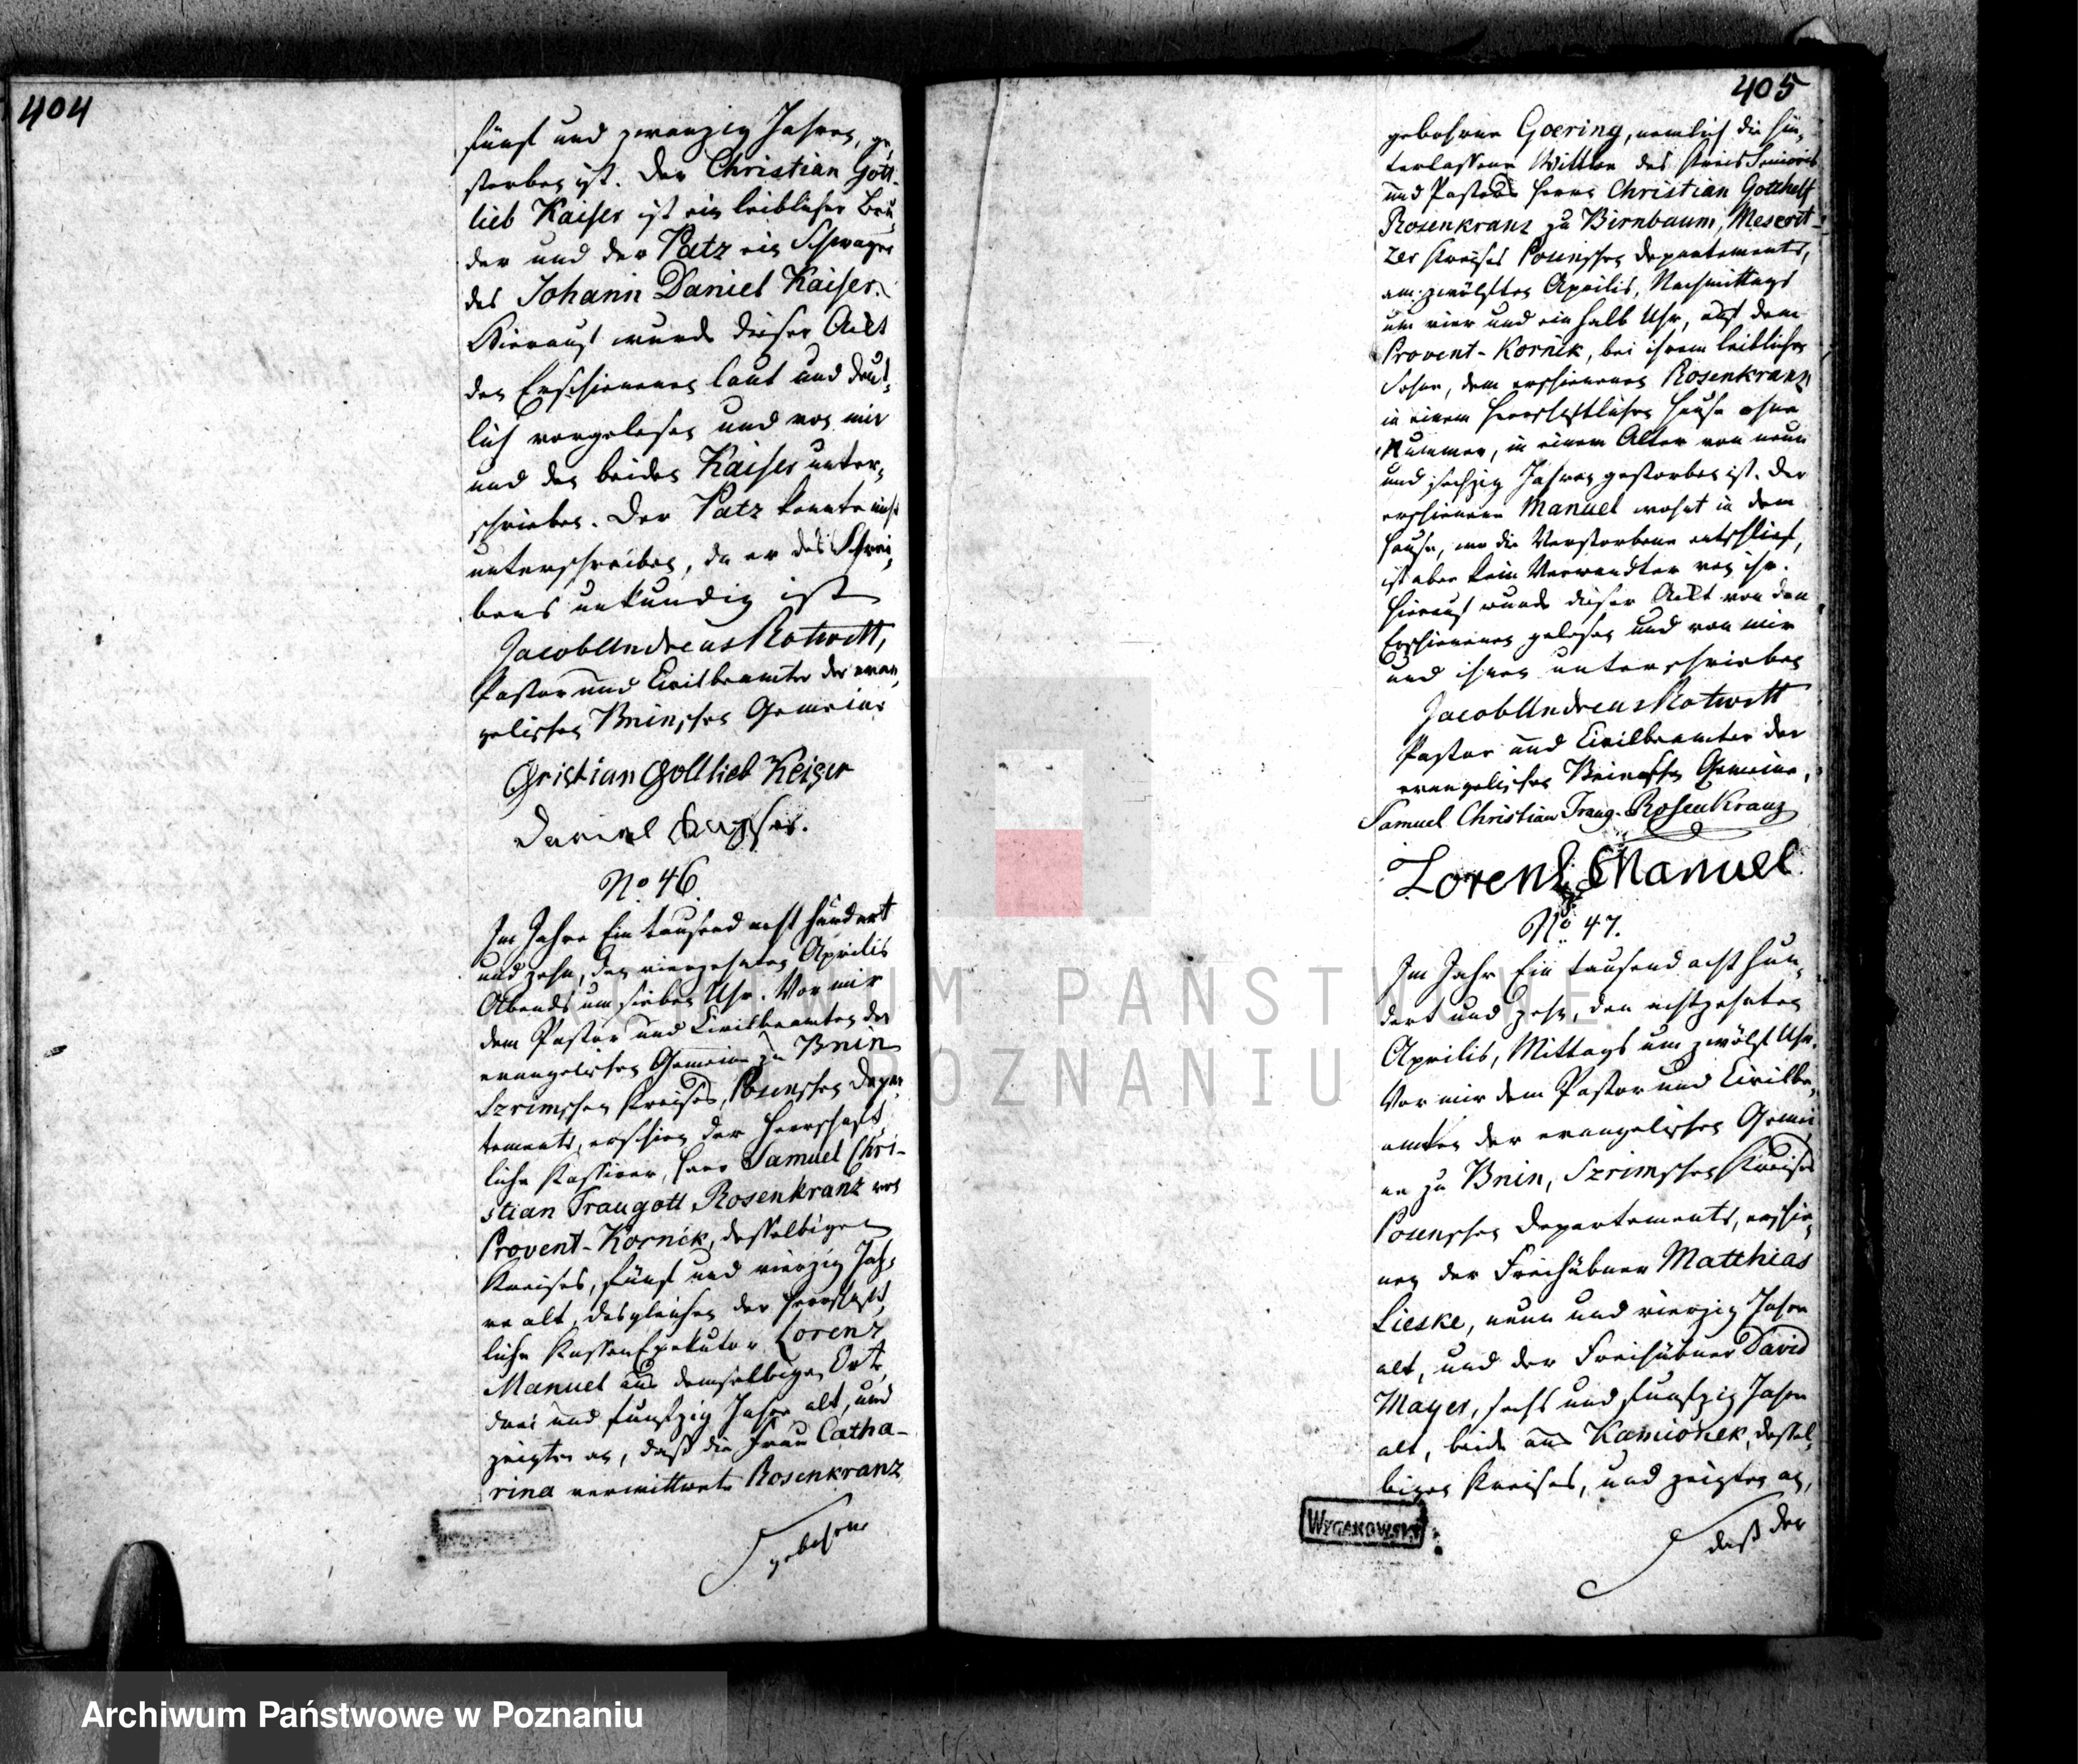 404
fünf und zwanzig Jahren, ge-
storben ist. Der Christian Gott-
lieb Kaiser ist ein leiblicher Bru-
der und der Patz ein Schwager
des Johann Daniel Kaiser.
Hierauf wurde dieser Act
den Erschienenen laut und deut-
lich vorgelesen und von mir
und den beiden Kaiser unter-
schrieben. Der Patz konnte nicht
unterschreiben, da er des Schrei-
bens unkundig ist
Jacob Andreas Notwitt,
Pastor und Civilbeamter der evan-
gelischen Bninschen Gemeine
Christian Gottlieb Keiser
Daniel
No 46.
Im Jahre Ein tausend acht hundert
und zehn, den vierzehnten Aprilis
Abends um sieben Uhr. Vor mir
dem Pastor und Civilbeamten der
evangelischen Gemeine zu Bnin
Szrimschen Kreises, Posenschen Depar-
tements, erschien der Herrschaft-
liche Kassirer, Herr Samuel Chri-
stian Traugott Rosenkranz von
Provent-Kornik, desselbigen
Kreises, fünf und vierzig Jah-
re alt, desgleichen der Herrschaft-
liche Kassen Exekutor Lorenz
Manuel aus demselbigen Orte,
drei und funfzig Jahre alt, und
zeigten an, daß die Frau Catha-
rina verwittwete Rosenkranz
gebohrne
405
gebohrne Goering, nemlich die hin-
terlassene Wittwe des Kreis Seniors
und Pastors Herrn Christian Gotthelf
Rosenkranz zu Birnbaum, Meserit-
zer Kreises Posenschen Departements,
am zwölften Aprilis, Nachmittags
um vier und ein halb Uhr, auf dem
Provent-Kornik, bei ihrem leiblichen
Sohne, dem erschienenen Rosenkranz
in einem Herrschaftlichen Hause ohne
Nummer, in einem Alter von neun
und sechzig Jahren gestorben ist. Der
erschienene Manuel wohnt in dem
Hause, wo die Verstorbene entschlief,
ist aber kein Verwandter von ihr.
Hierauf wurde dieser Act von den
Erschienenen gelesen und von mir
und ihnen unterschrieben
Jacob Andreas Notwitt
Pastor und Civilbeamter der
evangelischen Bninschen Gemeine.
Samuel Christian Traug. Rosenkranz
Lorenz Manuel
No 47.
Im Jahr Ein tausend acht hun-
dert und zehn, den achtzehnten
Aprilis, Mittags um zwölf Uhr.
Vor mir dem Pastor und Civilbe-
amten der evangelischen Gemei-
ne zu Bnin, Szrimschen Kreises
Posenschen Departements, erschie-
nen der Freihübner Matthias
Lieske, neun und vierzig Jahre
alt, und der Freihübner David
Mayer, sechs und funfzig Jahre
alt, beide aus Kamionek, dessel-
bigen Kreises, und zeigten an,
daß der
WYGANOWSKI
ARCHIWUM PAŃSTWOWE
POZNANIU
Archiwum Państwowe w Poznaniu